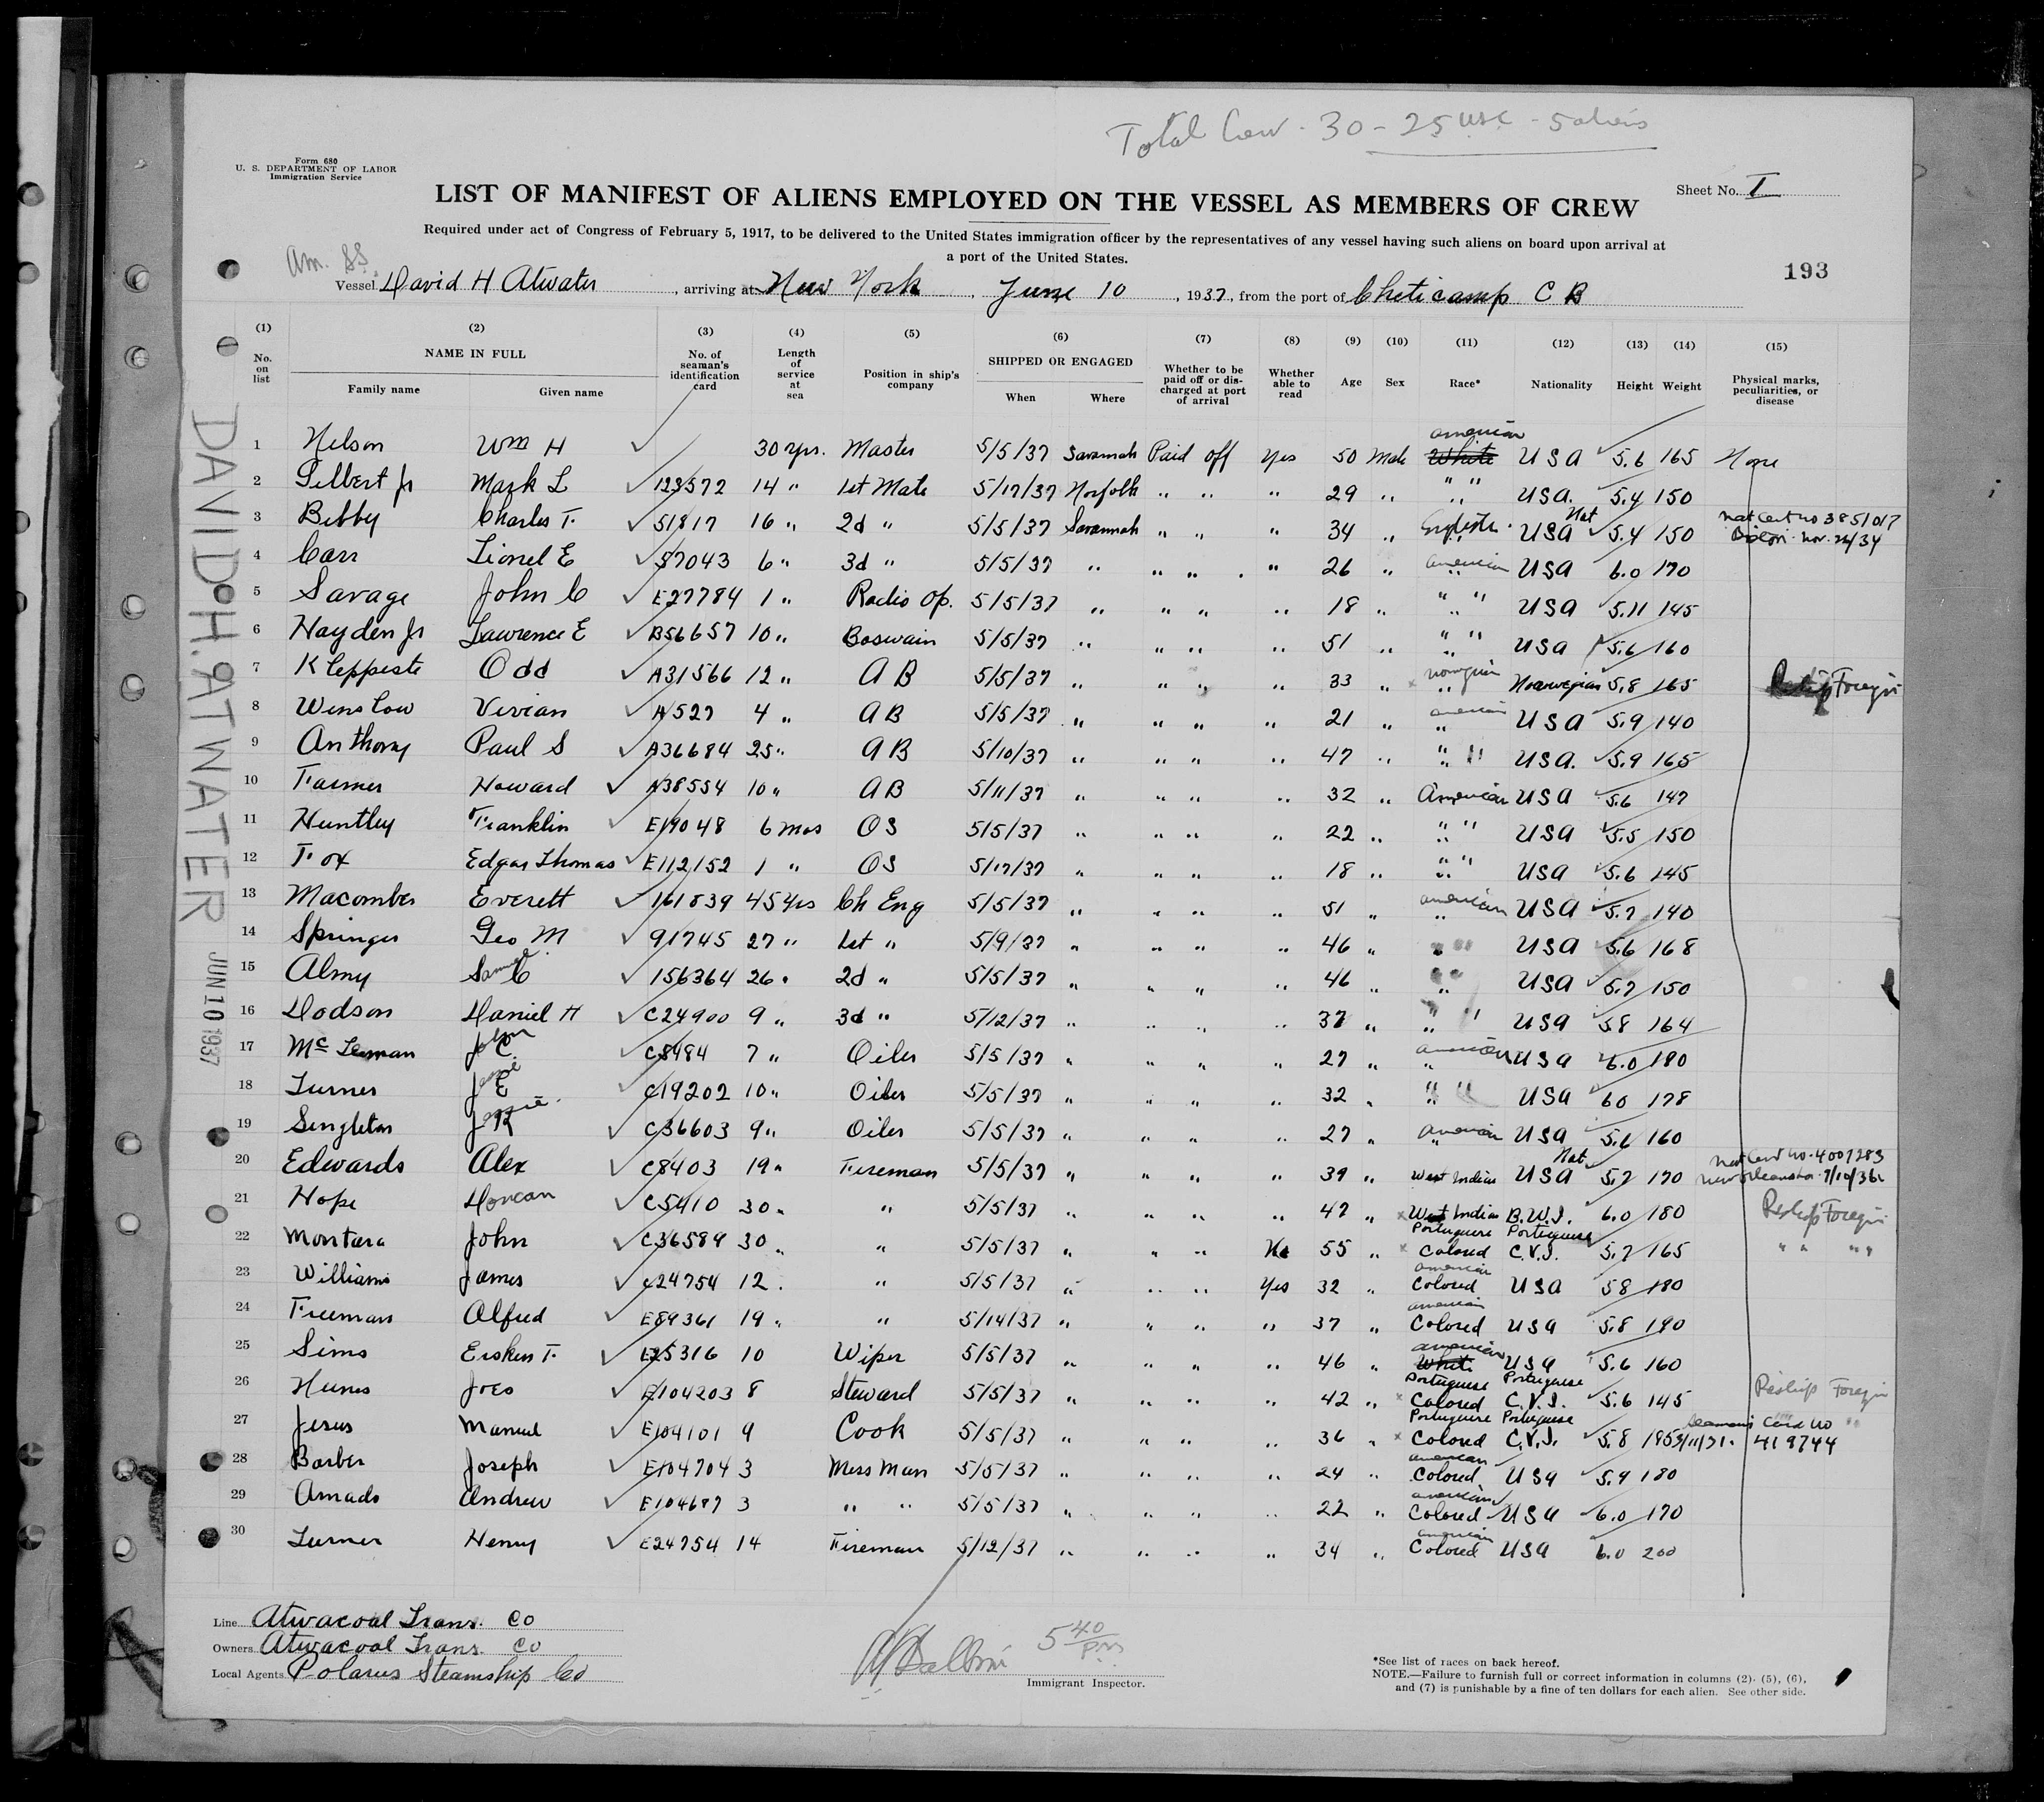 Total Crew - 30 - 25 USC - 5 aliens
Form 680
U. S. DEPARTMENT OF LABOR
Immigration Service
Sheet No. I
LIST OF MANIFEST OF ALIENS EMPLOYED ON THE VESSEL AS MEMBERS OF CREW
Required under act of Congress of February 5, 1917, to be delivered to the United States immigration officer by the representatives of any vessel having such aliens on board upon arrival at
a port of the United States.
193
Am. SS
Vessel David H Atwater, arriving at New York, June 10, 1937, from the port of Cheticamp C B
(1) (2) (3) (4) (5) (6) (7) (8) (9) (10) (11) (12) (13) (14) (15)
No. on list NAME IN FULL Family name Given name No. of seaman's identification card Length of service at sea Position in ship's company SHIPPED OR ENGAGED When Where Whether to be paid off or discharged at port of arrival Whether able to read Age Sex Race* Nationality Height Weight Physical marks, peculiarities, or disease
1 Nelson Wm H 30 yrs. Master 5/5/37 Savannah Paid off Yes 50 Male American White USA 5.6 165 None
2 Silbert Jr Mark L 123572 14 " 1st Mate 5/17/37 Norfolk " " " 29 " " " USA. 5.4 150
3 Bibby Charles T. 51817 16 " 2d " 5/5/37 Savannah " " " 34 " English USA Nat 5.4 150 Nat Cert no 3851017 Nov. 26/34
4 Carr Lionel E 87043 6 " 3d " 5/5/37 " " " " 26 " American USA 6.0 170
5 Savage John C E27784 1 " Radio Op. 5/5/37 " " " " 18 " " " USA 5.11 145
6 Hayden Jr Lawrence E B56657 10 " Boswain 5/5/37 " " " " 51 " " " USA 5.6 160
7 Kleppeste Odd A31566 12 " A B 5/5/37 " " " " 33 " Norwegian Norwegian 5.8 165 Reship Foreign
8 Winslow Vivian A527 4 " A B 5/5/37 " " " " 21 " American USA 5.9 140
9 Anthony Paul S A36684 25 " A B 5/10/37 " " " " 47 " " " USA. 5.9 165
10 Farmer Howard A38554 10 " A B 5/11/37 " " " " 32 " American USA 5.6 147
11 Huntley Franklin E19048 6 mos OS 5/5/37 " " " " 22 " " " USA 5.5 150
12 Fox Edgar Thomas E112152 1 " OS 5/17/37 " " " " 18 " " " USA 5.6 145
13 Macomber Everett 161839 45 yrs Ch Eng 5/5/37 " " " " 51 " American USA 5.7 140
14 Springer Geo M 91745 27 " 1st " 5/9/37 " " " " 46 " " " USA 5.6 168
15 Almy Samuel C 156364 26 " 2d " 5/5/37 " " " " 46 " " " USA 5.7 150
16 Dodson Daniel H C24900 9 " 3d " 5/12/37 " " " " 37 " " " USA 5.8 164
17 McLeman John C. C8484 7 " Oiler 5/5/37 " " " " 27 " American USA 6.0 180
18 Turner E C19202 10 " Oiler 5/5/37 " " " " 32 " " " USA 6.0 178
19 Singleton C36603 9 " Oiler 5/5/37 " " " " 27 " American USA 5.6 160
20 Edwards Alex C8403 19 " Fireman 5/5/37 " " " " 39 " West Indian USA Nat 5.7 170 Nat Cert no. 4007283 New Orleans 7/10/36
21 Hope Duncan C5410 30 " " 5/5/37 " " " " 47 " West Indian B.W.I. 6.0 180 Reship Foreign
22 Montara John C36589 30 " " 5/5/37 " " " No 55 " Portuguese Colored Portuguese C.V.I. 5.7 165 " " " "
23 Williams James C24754 12 " 5/5/37 " " " Yes 32 " American Colored USA 5.8 180
24 Freeman Alfred E89361 19 " " 5/14/37 " " " " 37 " American Colored USA 5.8 190
25 Sims Erskin T. E25316 10 Wiper 5/5/37 " " " " 46 " American White USA 5.6 160
26 Nunes Joes E104203 8 Steward 5/5/37 " " " " 42 " Portuguese Colored Portuguese C.V.I. 5.6 145 Reship Foreign
27 Jesus Manuel E104101 9 Cook 5/5/37 " " " " 36 " Portuguese Colored Portuguese C.V.I. 5.8 185 Seaman's Card no 419744
28 Barber Joseph E104704 3 Mess Man 5/5/37 " " " " 24 " American Colored USA 5.9 180
29 Amado Andrew E104687 3 " " 5/5/37 " " " " 22 " American Colored USA 6.0 170
30 Turner Henry E24754 14 Fireman 5/12/37 " " " " 34 " American Colored USA 6.0 200
DAVID H. ATWATER JUN 10 1937
Line Atwacoal Trans. Co
Owners Atwacoal Trans. Co
Local Agents Polarus Steamship Co
5 40 PM
Immigrant Inspector.
*See list of races on back hereof.
NOTE.—Failure to furnish full or correct information in columns (2), (5), (6),
and (7) is punishable by a fine of ten dollars for each alien. See other side.